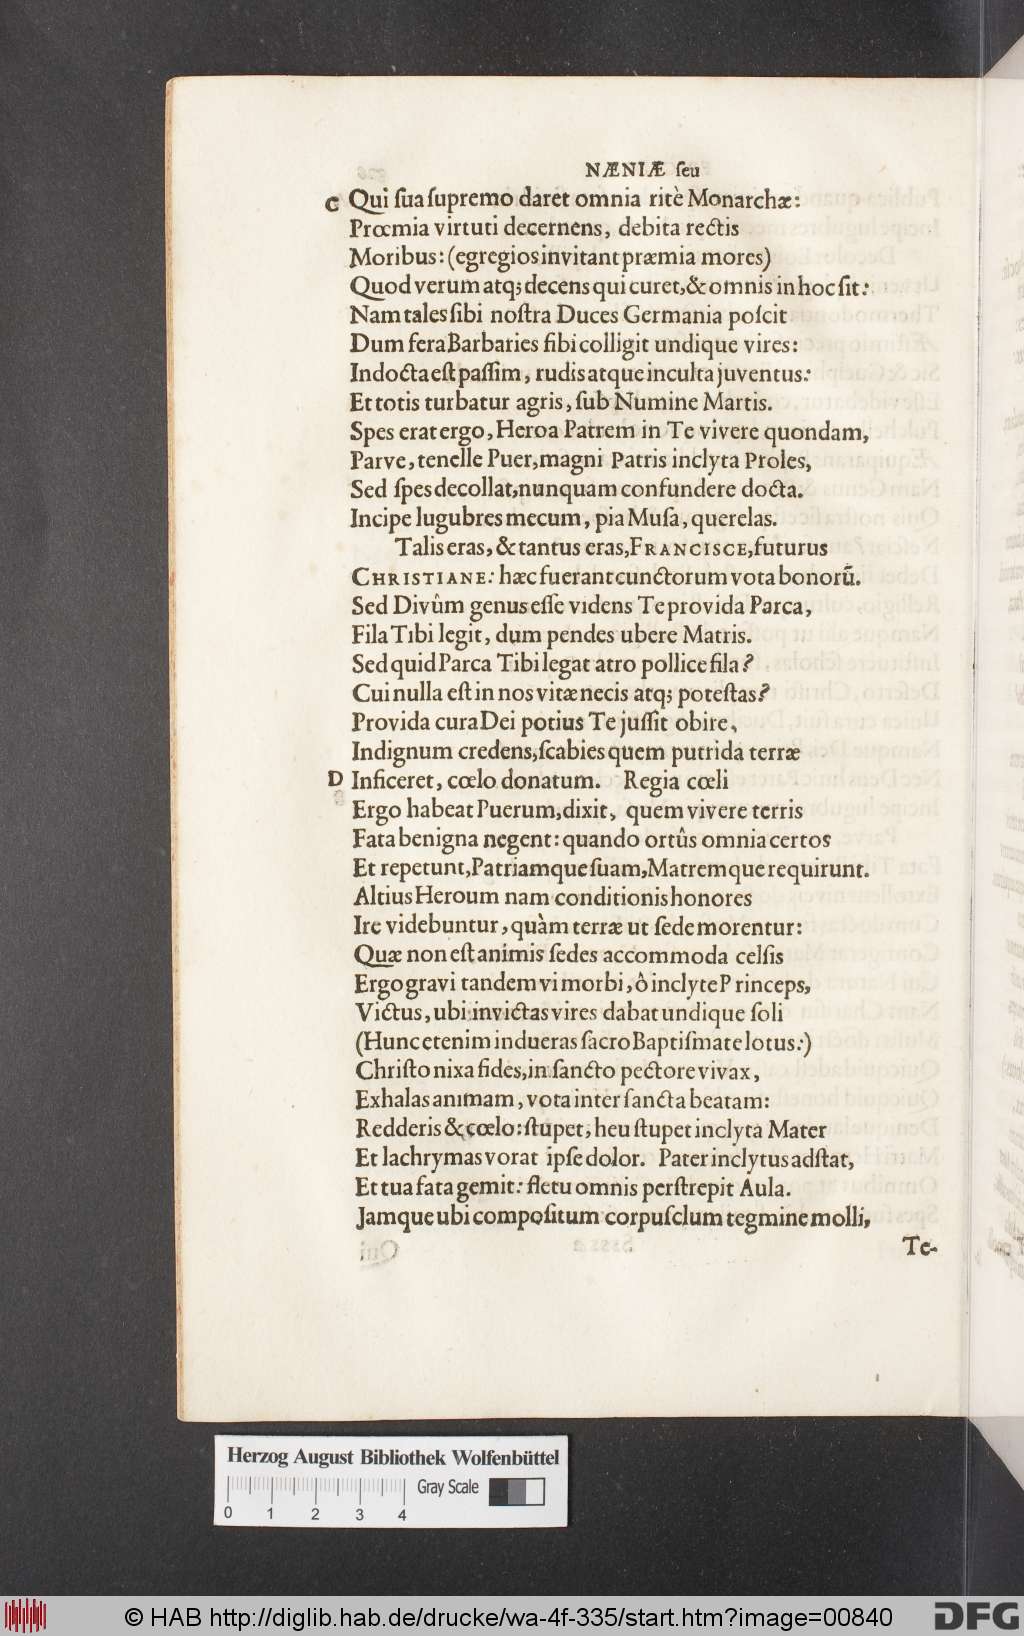 NÆNIÆ ſeu
C Qui ſua ſupremo daret omnia ritè Monarchæ:
Prœmia virtuti decernens, debita rectis
Moribus: (egregios invitant præmia mores)
Quod verum atq; decens qui curet, & omnis in hoc ſit:
Nam tales ſibi noſtra Duces Germania poſcit
Dum fera Barbaries ſibi colligit undique vires:
Indocta eſt paſſim, rudis atque inculta juventus:
Et totis turbatur agris, ſub Numine Martis.
Spes erat ergo, Heroa Patrem in Te vivere quondam,
Parve, tenelle Puer, magni Patris inclyta Proles,
Sed ſpes decollat, nunquam confundere docta.
Incipe lugubres mecum, pia Muſa, querelas.
Talis eras, & tantus eras, FRANCISCE, futurus
CHRISTIANE: hæc fuerant cunctorum vota bonorū.
Sed Divûm genus eſſe videns Te provida Parca,
Fila Tibi legit, dum pendes ubere Matris.
Sed quid Parca Tibi legat atro pollice fila?
Cui nulla eſt in nos vitæ necis atq; poteſtas?
Provida cura Dei potius Te juſſit obire,
Indignum credens, ſcabies quem putrida terræ
D Inficeret, cœlo donatum. Regia cœli
Ergo habeat Puerum, dixit, quem vivere terris
Fata benigna negent: quando ortûs omnia certos
Et repetunt, Patriamque ſuam, Matremque requirunt.
Altius Heroum nam conditionis honores
Ire videbuntur, quàm terræ ut ſede morentur:
Quæ non eſt animis ſedes accommoda celſis
Ergo gravi tandem vi morbi, ô inclyte Princeps,
Victus, ubi invictas vires dabat undique ſoli
(Hunc etenim indueras ſacro Baptiſmate lotus:)
Chriſto nixa fides, in ſancto pectore vivax,
Exhalas animam, vota inter ſancta beatam:
Redderis & cœlo: ſtupet, heu ſtupet inclyta Mater
Et lachrymas vorat ipſe dolor. Pater inclytus adſtat,
Et tua fata gemit: fletu omnis perſtrepit Aula.
Jamque ubi compoſitum corpuſclum tegmine molli,
Te-
Herzog August Bibliothek Wolfenbüttel
Gray Scale
0 1 2 3 4
© HAB http://diglib.hab.de/drucke/wa-4f-335/start.htm?image=00840
DFG